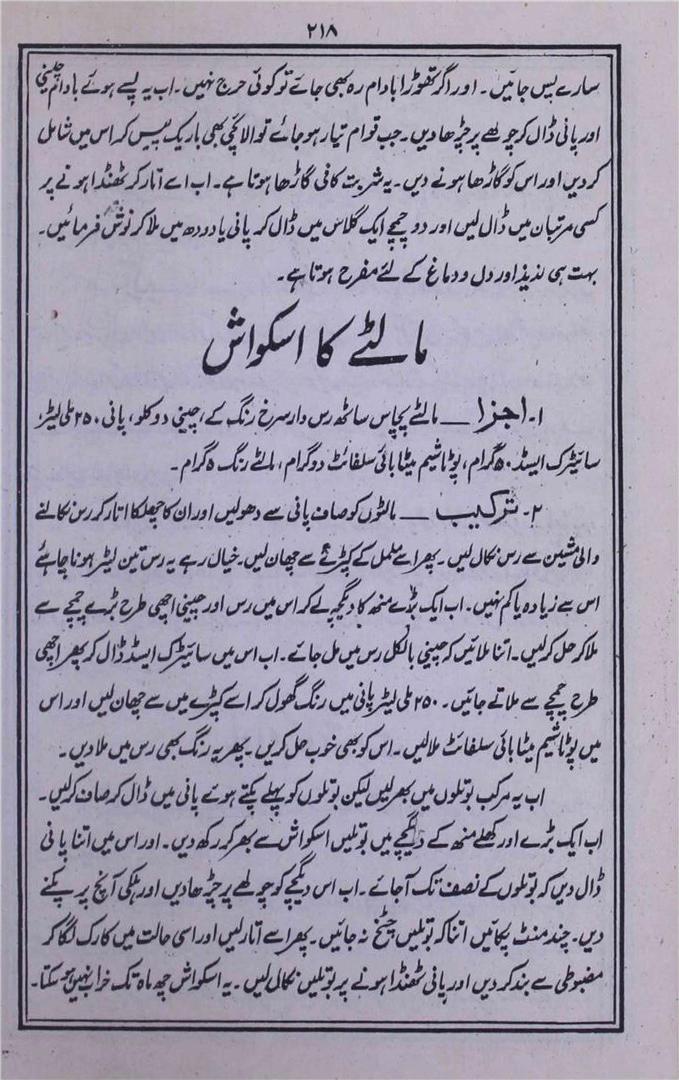 ۲۱۸
سارے پس جائیں۔ اور اگر تھوڑا بادام رہ بھی جائے تو کوئی حرج نہیں۔ اب یہ پسے ہوئے بادام چینی
اور پانی ڈال کر چولھے پر چڑھا دیں۔ جب قوام تیار ہو جائے تو الائچی بھی باریک پیس کر اس میں شامل
کر دیں اور اس کو گاڑھا ہونے دیں۔ یہ شربت کافی گاڑھا ہوتا ہے۔ اب اسے اتار کر ٹھنڈا ہونے پر
کسی مرتبان میں ڈال لیں اور دو چمچے ایک گلاس میں ڈال کر پانی یا دودھ میں ملا کر نوش فرمائیں۔
بہت ہی لذیذ اور دل و دماغ کے لئے مفرح ہوتا ہے۔
مالٹے کا اسکواش
۱۔ اجزا ـــ مالٹے پچاس ساٹھ رس دار سرخ رنگ کے، چینی دو کلو، پانی ۲۵۰ ملی لیٹر،
سائیٹرک ایسڈ ۵۰ گرام، پوٹاشیم میٹا بائی سلفائٹ دو گرام، مالٹے رنگ ۵ گرام۔
۲۔ ترکیب ـــ مالٹوں کو صاف پانی سے دھو لیں اور ان کا چھلکا اتار کر رس نکالنے
والی مشین سے رس نکال لیں۔ پھر اسے ململ کے کپڑے سے چھان لیں۔ خیال رہے یہ رس تین لیٹر ہونا چاہئے
اس سے زیادہ یا کم نہیں۔ اب ایک بڑے منھ کا دیگچہ لے کر اس میں رس اور چینی اچھی طرح بڑے چمچے سے
ملا کر حل کر لیں۔ اتنا ملائیں کہ چینی بالکل رس میں مل جائے۔ اب اس میں سائیٹرک ایسڈ ڈال کر پھر اچھی
طرح چمچے سے ملاتے جائیں۔ ۲۵۰ ملی لیٹر پانی میں رنگ گھول کر اسے کپڑے میں سے چھان لیں اور اس
میں پوٹاشیم میٹا بائی سلفائٹ ملا لیں۔ اس کو بھی خوب حل کریں۔ پھر یہ رنگ بھی رس میں ملا دیں۔
اب یہ مرکب بوتلوں میں بھر لیں لیکن بوتلوں کو پہلے پکتے ہوئے پانی میں ڈال کر صاف کر لیں۔
اب ایک بڑے اور کھلے منھ کے دیگچے میں بوتلیں اسکواش سے بھر کر رکھ دیں۔ اور اس میں اتنا پانی
ڈال دیں کہ بوتلوں کے نصف تک آجائے۔ اب اس دیگچے کو چولھے پر چڑھا دیں اور ہلکی آنچ پر پکنے
دیں۔ چند منٹ پکائیں اتنا کہ بوتلیں چٹخ نہ جائیں۔ پھر اسے اتار لیں اور اسی حالت میں کارک لگا کر
مضبوطی سے بند کر دیں اور پانی ٹھنڈا ہونے پر بوتلیں نکال لیں۔ یہ اسکواش چھ ماہ تک خراب نہیں ہو سکتا۔